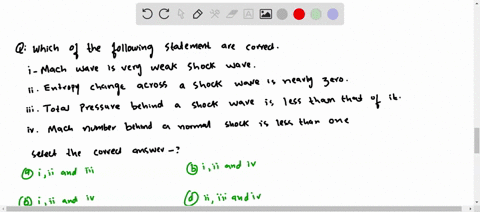 Q: Which of the following statement are corred.
i - Mach wave is very weak shock wave.
ii. Entropy change across a shock wave is nearly zero.
iii. Total Pressure behind a shock wave is less than that of it.
iv. Mach number behind a normal shock is less than one
select the correct answer - ?
(a) i, ii and iii (b) i, ii and iv
(c) i, ii and iv (d) ii, iii and iv